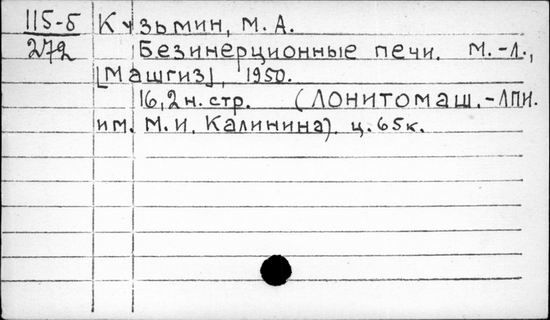 115-б Кузьмин, М. А.
272 Безинерционные печи. М.-Л.,
[Машгиз], 1950.
16,2 н. стр. (ЛОНИТОМАШ.-ЛПИ.
им. М.И. Калинина). ц. 65к.